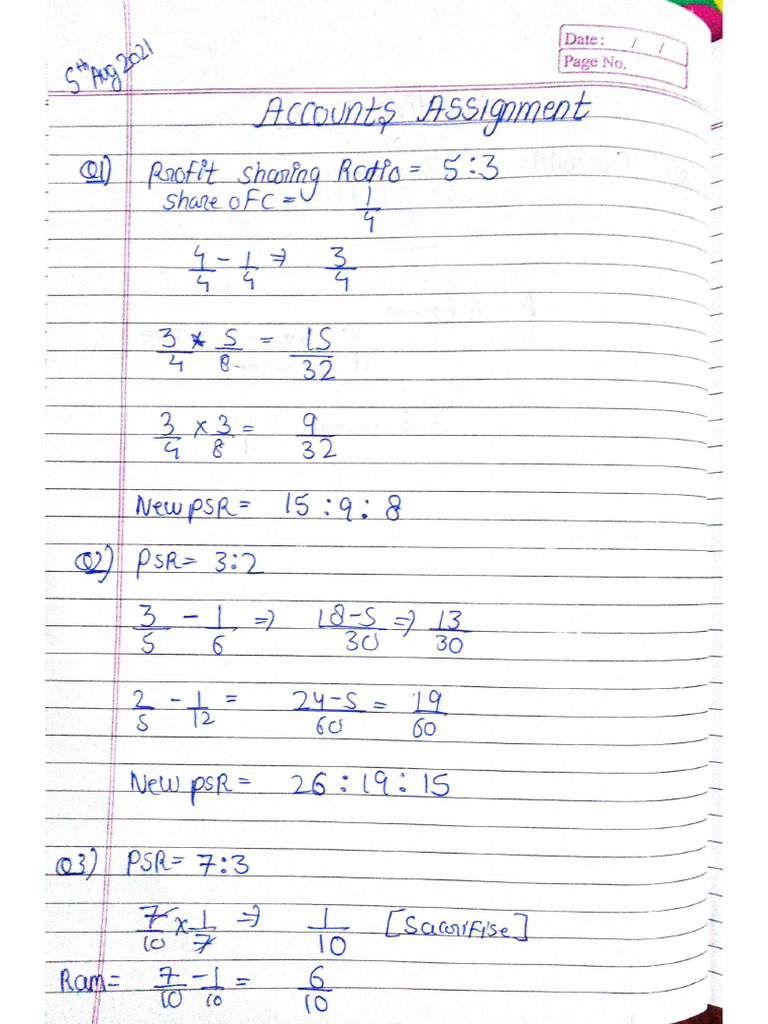 Date: / /
Page No.
5th Aug 2021
Accounts Assignment
Q1) Profit sharing Ratio = 5:3
Share of C = 1/4
4/4 - 1/4 ⇒ 3/4
3/4 * 5/8 = 15/32
3/4 x 3/8 = 9/32
New PSR = 15:9:8
Q2) PSR = 3:2
3/5 - 1/6 ⇒ 18-5/30 ⇒ 13/30
2/5 - 1/12 = 24-5/60 = 19/60
New PSR = 26:19:15
Q3) PSR = 7:3
7/10 x 1/7 ⇒ 1/10 [Sacrifise]
Ram = 7/10 - 1/10 = 6/10